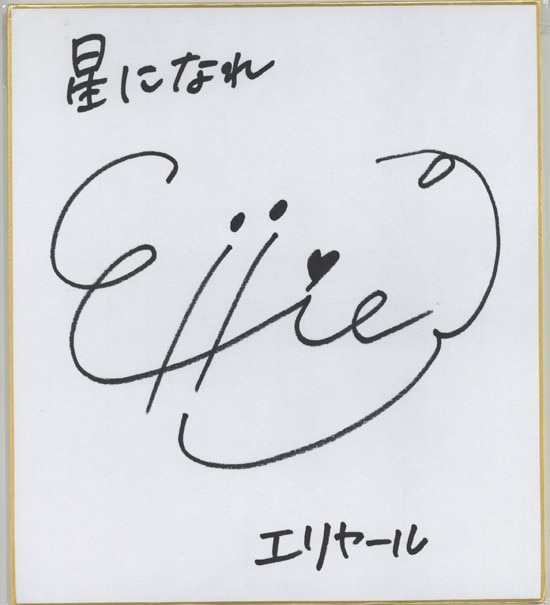 星になれ
Effie
エリヤール